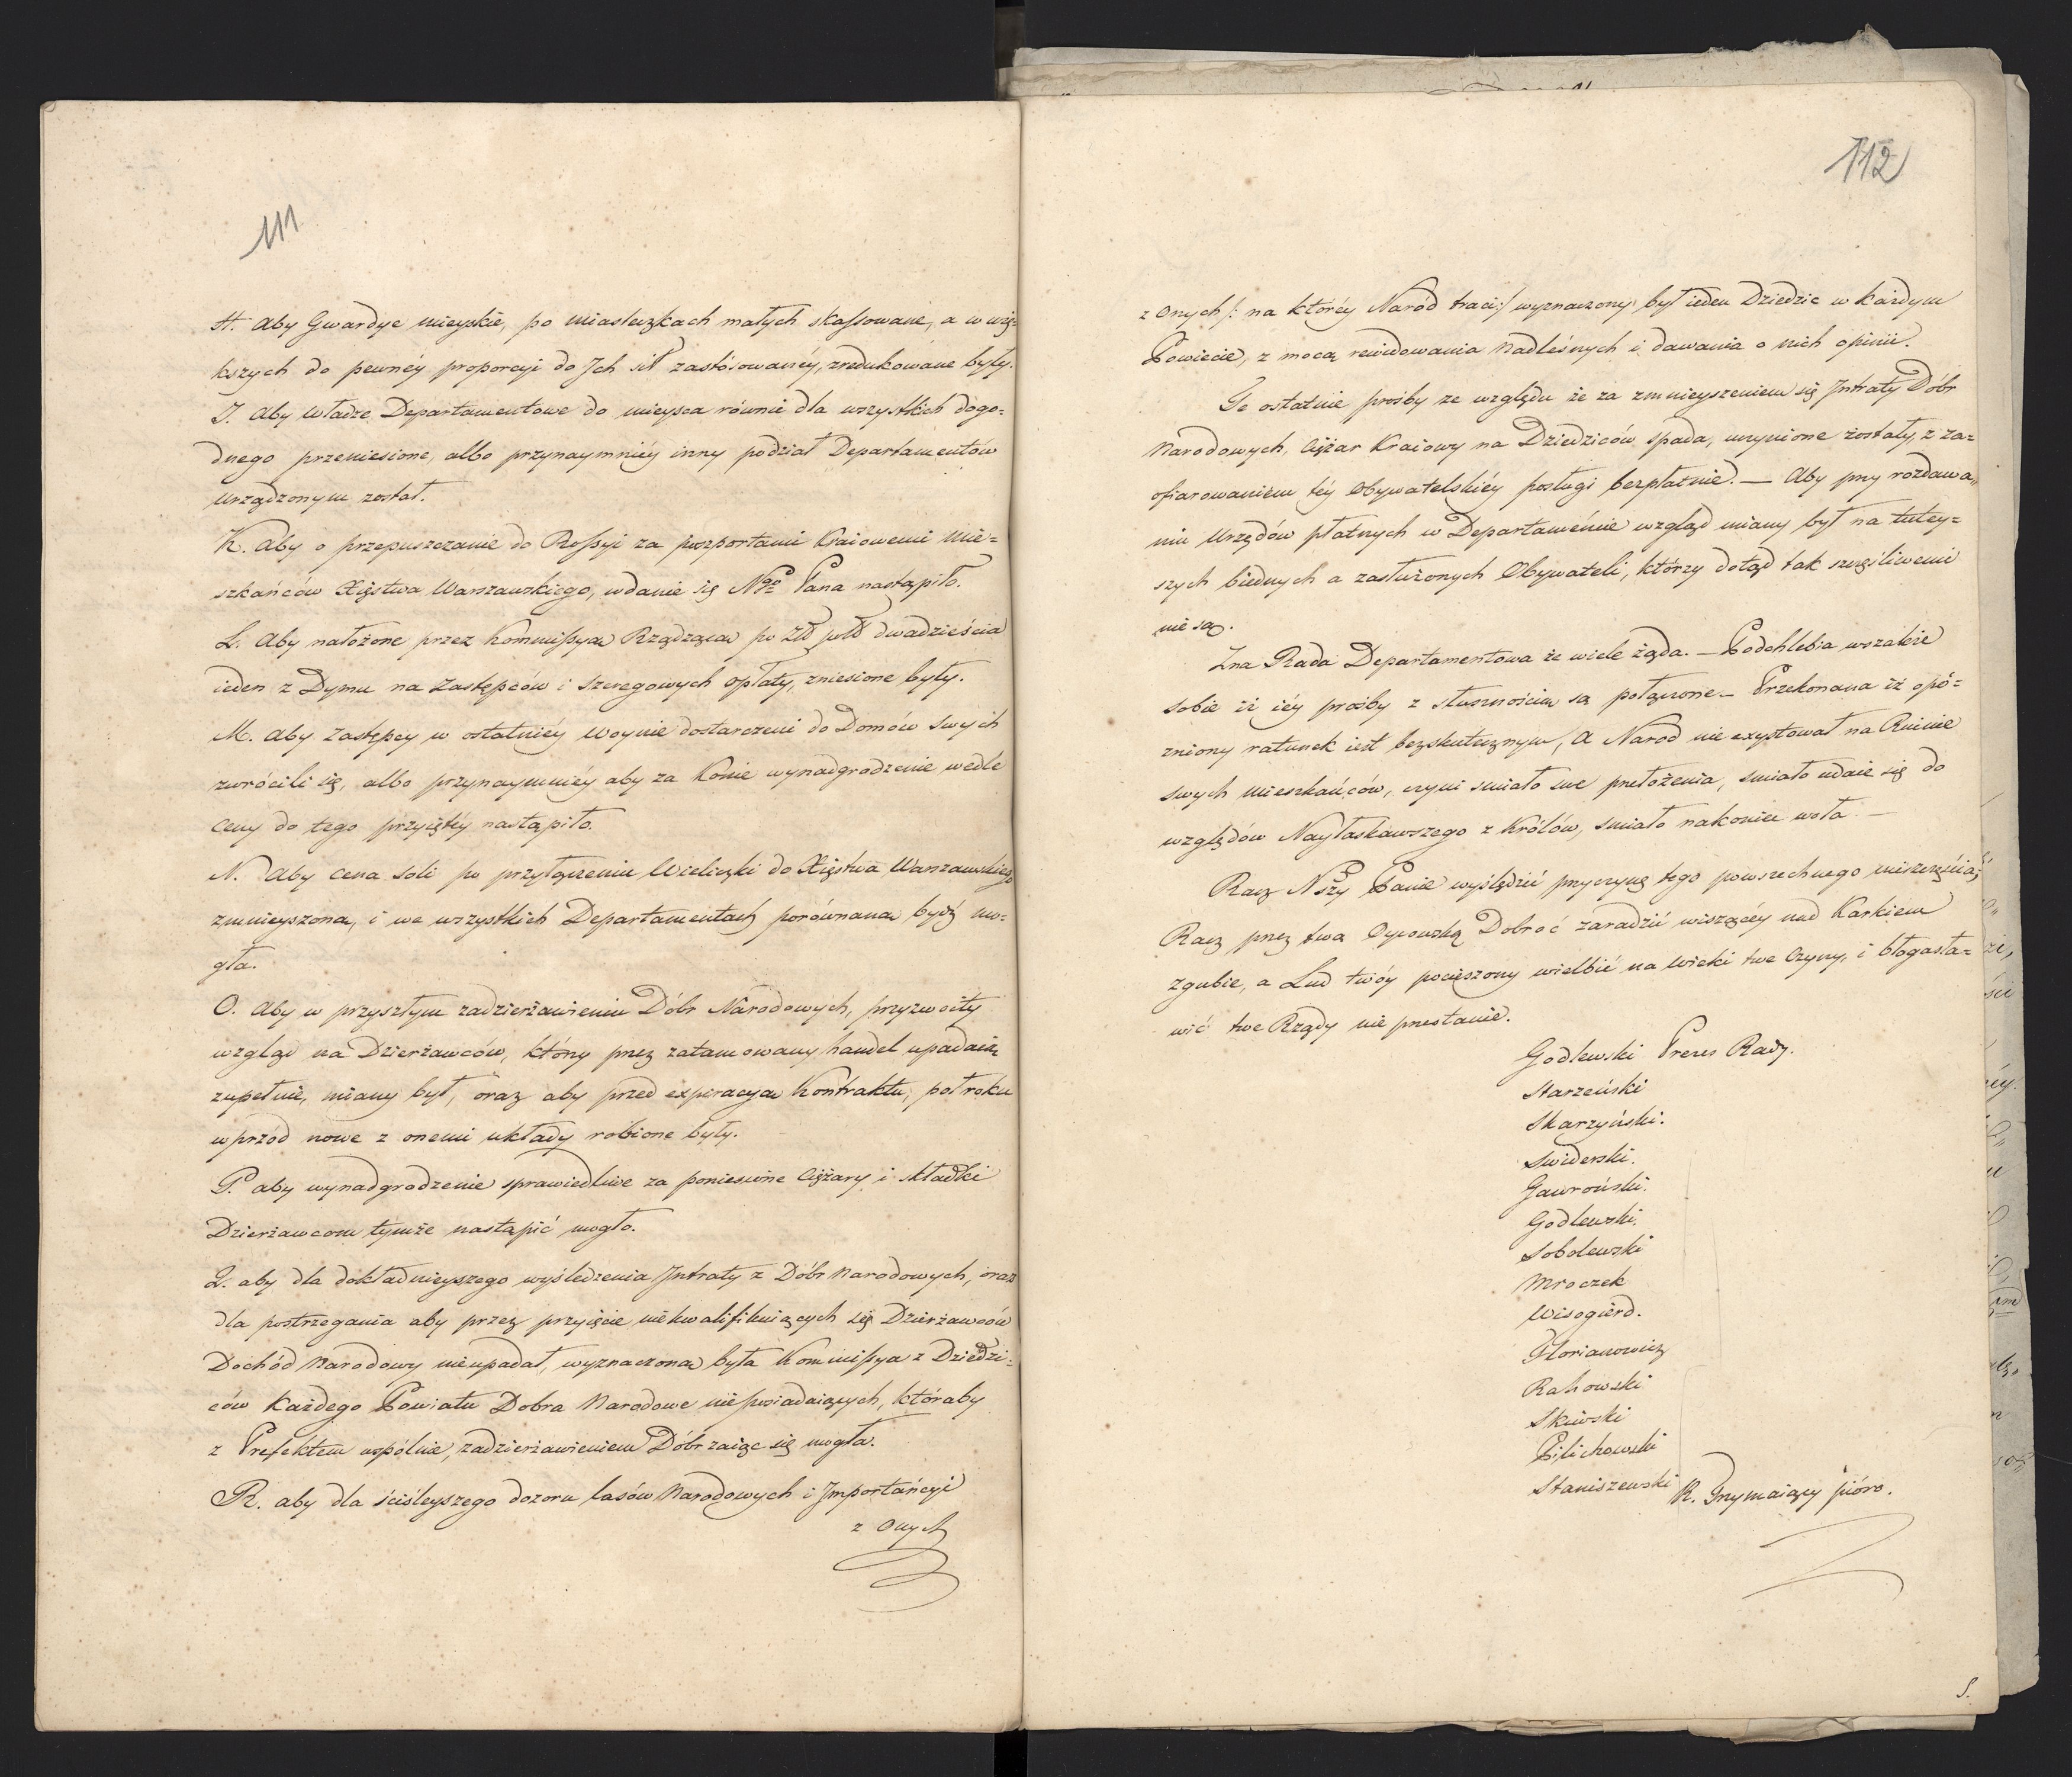 111
H. Aby Gwardye mieyskie, po miasteczkach małych skassowane, a w wię=
kszych do pewnéy proporcyi do Jch sił zastósowanéy, zredukowane były.
J. Aby Władze Departamentowe do mieysca równie dla wszystkich dogo=
dnego przeniesione, albo przynaymniéy inny podział Departamentów
urządzonym został.
K. Aby o przepuszczanie do Rossyi za paszportami Kraiowemi mie=
szkańców Xięstwa Warszawskiego, wdanie się Ngo Pana nastąpiło.
L. Aby nałożone przez Kommissyą Rządzącą po Zł pols dwadzieścia
ieden z Dymu na Zastępców i Szeregowych opłaty, zniesione były.
M. Aby Zastępcy w ostatniéy Woynie dostarczeni do Domów swych
zwrócili się, albo przynaymniéy aby za Konie wynadgrodzenie wedle
ceny do tego przyiętéy nastąpiło.
N. Aby cena soli po przyłączeniu Wieliczki do Xięstwa Warszawskiego
zmnieyszona, i we wszystkich Departamentach porównana bydź mo=
gła.
O. Aby w przyszłym zadzierżawieniu Dóbr Narodowych, przyzwoity
wzgląd na Dzierżawców, który przez zatamowany handel upadaią
zupełnie, miany był, oraz aby przed expiracyą Kontraktu, pół roku
wprzód nowe z onemi układy robione były.
P. aby wynadgrodzenie sprawiedliwe za poniesione Ciężary i składki
Dzierżawcom tymże nastąpić mogło.
Q. aby dla dokładnieyszego wyśledzenia Jntraty z Dóbr Narodowych, oraz
dla postrzegania aby przez przyięcie niekwalifikuiących się Dzierżawców
Dochód Narodowy nieupadał, wyznaczona była Kommissya z Dziedzi=
ców każdego Powiatu Dobra Narodowe nieposiadaiących, któraby
z Prefektem wspólnie, zadzierżawieniem Dóbr zaiąć się mogła.
R. aby dla ściśleyszego dozoru lasów Narodowych i Jmportancyi
z onych
112
z Onych /: na któréy Naród traci :/ wyznaczony był ieden Dziedzic w każdym
Powiecie, z mocą rewidowania Nadleśnych i dawania o nich opinii.
Te ostatnie prośby ze względu że za zmnieyszeniem się Jntraty Dóbr
Narodowych, Ciężar Kraiowy na Dziedziców spada, uczynione zostały, z za=
ofiarowaniem téy Obywatelskiéy posługi bezpłatnie. — Aby przy rozdawa„
niu Urzędów płatnych w Departamencie wzgląd miany był na tutey=
szych biednych a zasłużonych Obywateli, którzy dotąd tak szczęśliwemi
nie są.
Zna Rada Departamentowa że wiele żąda. — Podchlebia wszakże
sobie iż iéy prośby z słusznością są połączone — Przekonana iż opó=
zniony ratunek iest bezskutecznym, a Naród nie exystował na Ruinie
swych mieszkańców, czyni smiało swe przełożenia, smiało udaie się do
względów Nayłaskawszego z Królów, smiało nakoniec woła. —
Racz Nszy Panie wyśledzić przyczynę tego powszechnego nieszczęścia;
Racz przez twą Oycowską Dobroć zaradzić wiszącéy nad Karkiem
zgubie, a Lud twóy pocieszony wielbić na Wieki twe Czyny, i błogosła=
wić twe Rządy nie przestanie.
Godlewski Prezes Rady.
Starzeński
Skarzyński.
Swiderski.
Gawroński.
Godlewski.
Sobolewski
Mroczek
Wisogierd.
Florianowicz
Rakowski
Skiwski
Pilichowski
Staniszewski R. Trzymaiący pióro.
S.